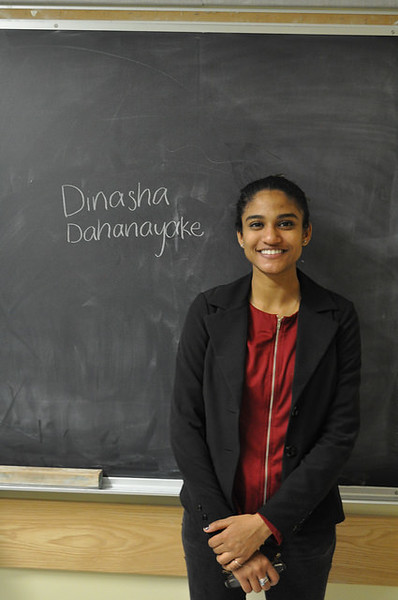 Dinasha
Dahanayake